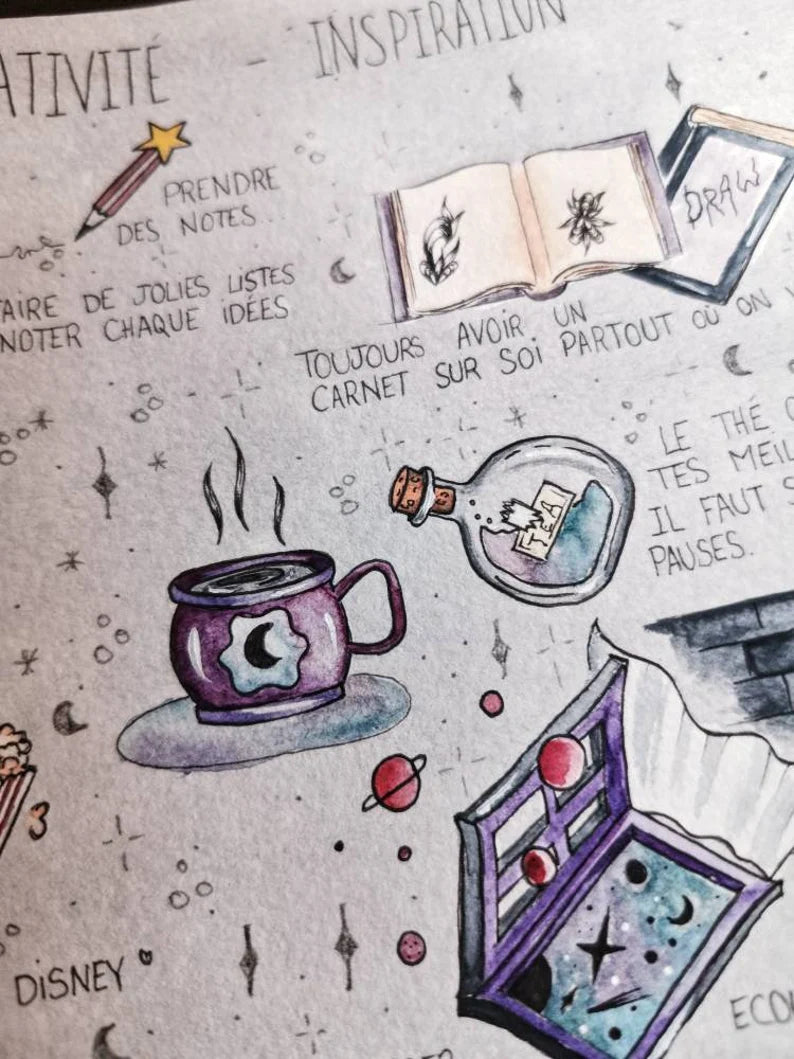 - INSPIRATION
PRENDRE
DES NOTES
DE JOLIES LISTES
NOTER CHAQUE IDÉES
DRAW
TOUJOURS AVOIR UN
CARNET SUR SOI PARTOUT OÙ ON
LE THÉ
TES
IL FAUT
PAUSES.
TEA
DISNEY